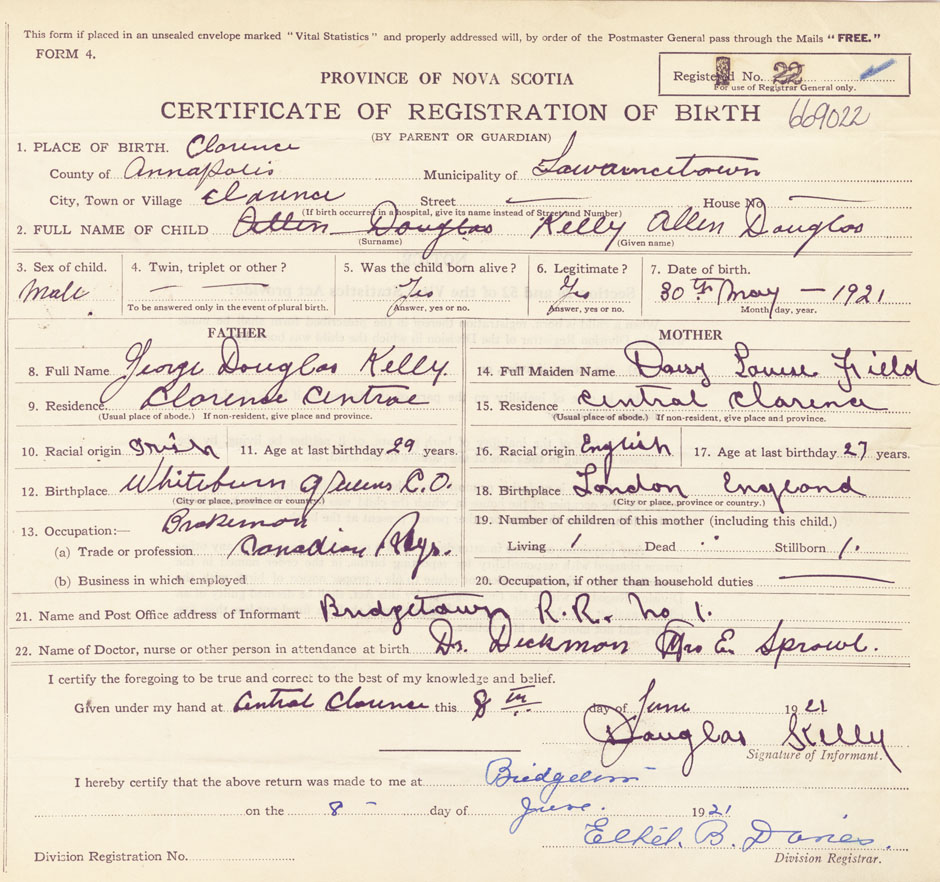 This form if placed in an unsealed envelope marked "Vital Statistics" and properly addressed will, by order of the Postmaster General pass through the Mails "FREE."
FORM 4.
Registered No. 22
For use of Registrar General only.
PROVINCE OF NOVA SCOTIA
CERTIFICATE OF REGISTRATION OF BIRTH 669022
(BY PARENT OR GUARDIAN)
1. PLACE OF BIRTH. Clarence
County of Annapolis Municipality of Lawrancetown
City, Town or Village Clarence Street — House No —
(If birth occurred in a hospital, give its name instead of Street and Number)
2. FULL NAME OF CHILD Allen Douglas Kelly Allen Douglas
(Surname) (Given name)
3. Sex of child. 4. Twin, triplet or other? 5. Was the child born alive? 6. Legitimate? 7. Date of birth.
Male — — Yes Yes 30th May — 1921
To be answered only in the event of plural birth. Answer, yes or no. Answer, yes or no. Month day, year.
FATHER MOTHER
8. Full Name George Douglas Kelly 14. Full Maiden Name Daisy Louise Field
9. Residence. Clarense Central 15. Residence Central Clarence
(Usual place of abode.) If non-resident, give place and province. (Usual place of abode.) If non-resident, give place and province.
10. Racial origin Irish 11. Age at last birthday 29 years. 16. Racial origin English 17. Age at last birthday 27 years.
12. Birthplace Whiteburn Queens C.O. 18. Birthplace London England
(City or place, province or country.) (City or place, province or country.)
13. Occupation:— Brakeman 19. Number of children of this mother (including this child.)
(a) Trade or profession Canadian Rlys. Living 1 Dead " Stillborn 1.
(b) Business in which employed 20. Occupation, if other than household duties —
21. Name and Post Office address of Informant Bridgetown R.R. No 1.
22. Name of Doctor, nurse or other person in attendance at birth Dr. Deckman Mrs E. Sprowl.
I certify the foregoing to be true and correct to the best of my knowledge and belief.
Given under my hand at Central Clarence this 8th day of June 1921
Douglas Kelly
Signature of Informant.
I hereby certify that the above return was made to me at Bridgetown
on the 8 - day of June. 1921
Ethel. B. Davies.
Division Registration No. Division Registrar.